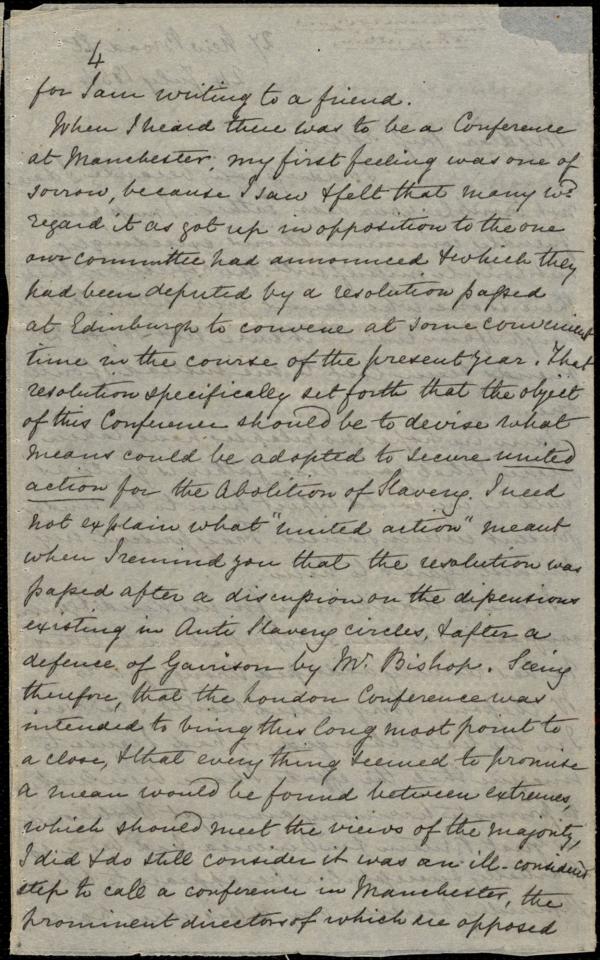 4
for I am writing to a friend.
When I heard there was to be a Conference
at Manchester, my first feeling was one of
sorrow, because I saw & felt that many wd
regard it as got up in opposition to the one
our committee had announced & which they
had been deputed by a resolution passed
at Edinburgh to convene at some convenient
time in the course of the present year. That
resolution specifically set forth that the object
of this Conference should be to devise what
means could be adopted to secure united
action for the Abolition of Slavery. I need
not explain what "united action" meant
when I remind you that the resolution was
passed after a discussion on the dissensions
existing in Anti Slavery circles, & after a
defence of Garrison by Mr. Bishop. Seeing
therefore, that the London Conference was
intended to bring this long moot point to
a close, & that everything seemed to promise
a mean would be found between extremes,
which should meet the views of the majority,
I did & do still consider it was an ill-considered
step to call a conference in Manchester, the
prominent directors of which are opposed